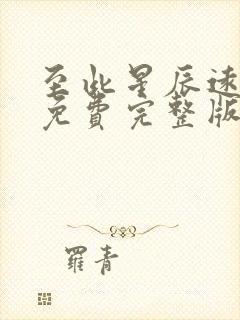 至此星辰速
免费完整版
羅青